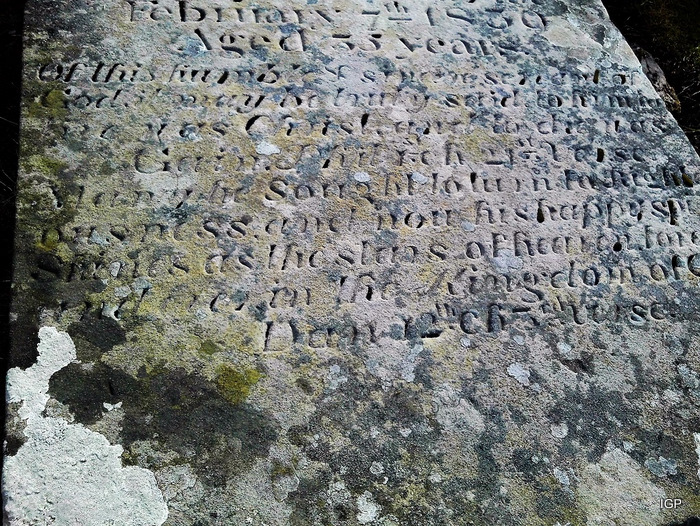 February 7th 1839
Aged 55 years
Of this humble & sincere servant of
God it may be truly said to him to
live was Christ and to die was
Gain Phil 1st Ch 21st Verse
Many he Sought to turn to right
ousness and now his happy spi
Shines as the stars of heaven
and ever in the Kingdom of
Dan 12th Ch 3d Verse
IGP